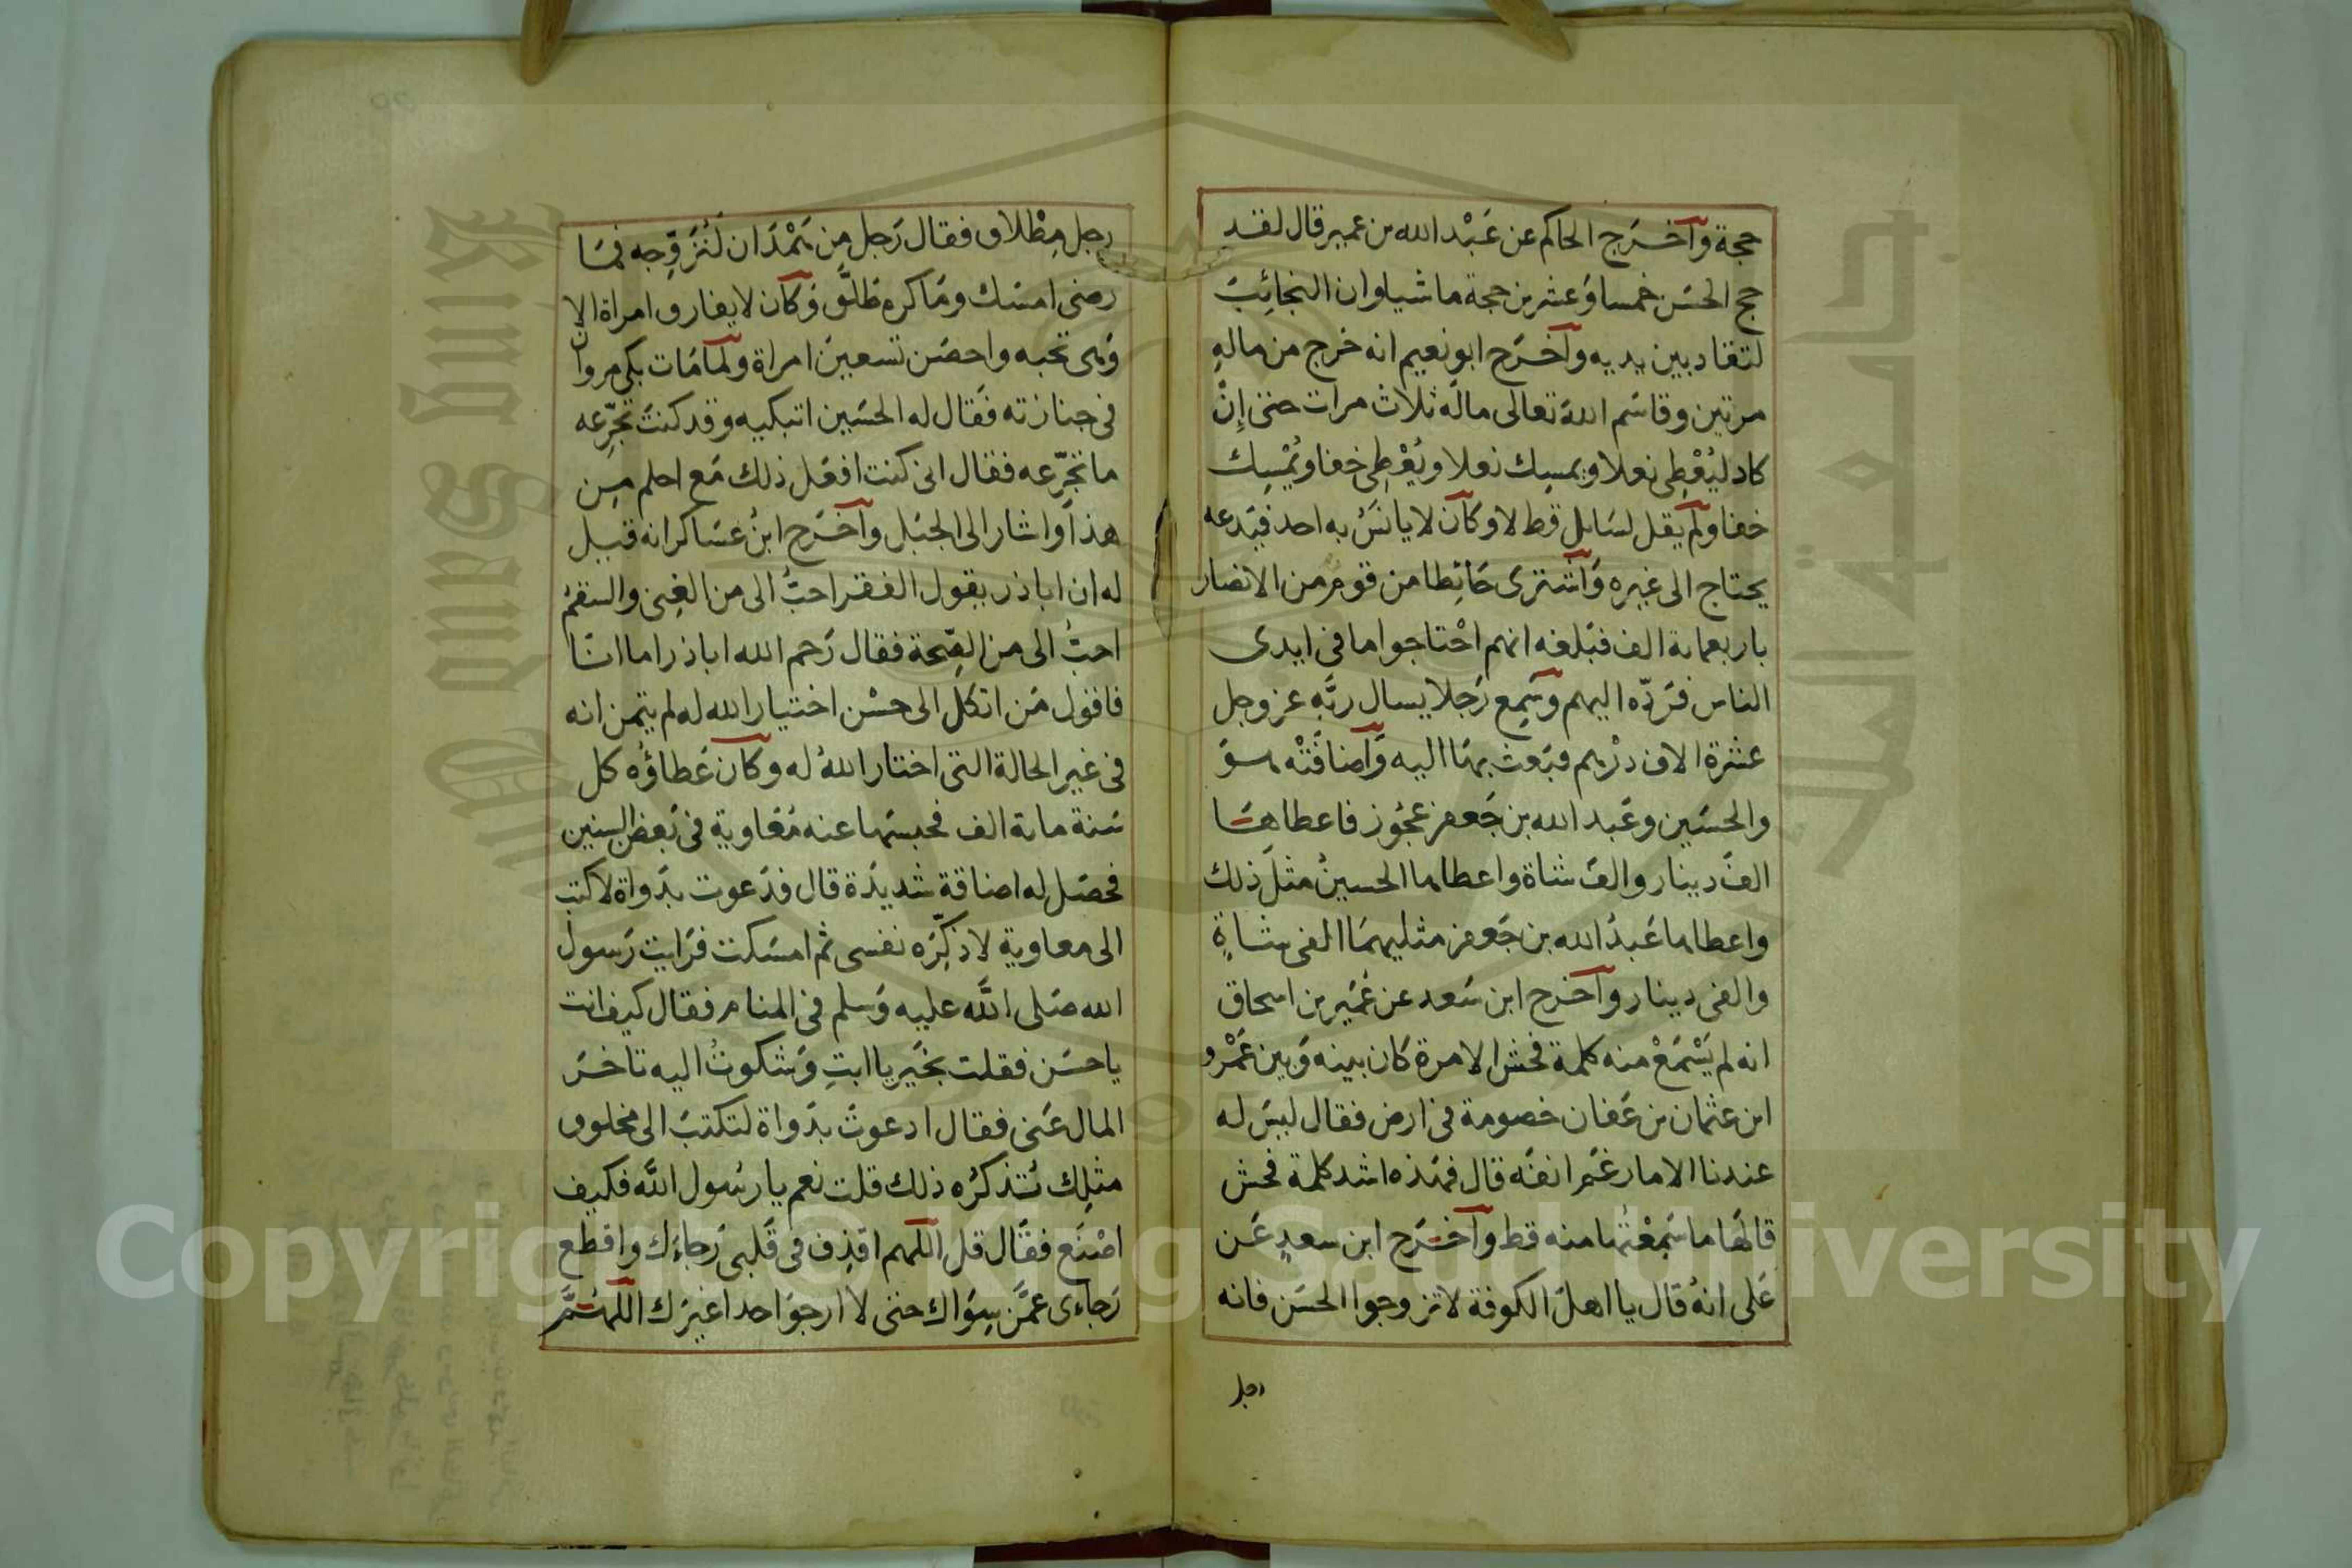 حجة وأخرج الحاكم عن عبد الله بن عمير قال لقد
حج الحسن خمسا وعشرين حجة ماشيا وان النجائب
لتقاد بين يديه وأخرج ابو نعيم انه خرج من ماله
مرتين وقاسم الله تعالى ماله ثلاث مرات حتى إن
كاد ليُعْطِى نعلا ويمسك نعلا ويُعْطِى خفا ويُمْسِك
خفا ولم يقل لسايل قط لا وكان لا يانس به احد فيدعه
يحتاج الى غيره واشترى حائطا من قوم من الانصار
باربعماىة الف فبلغه انهم احْتاجوا ما فى ايدى
الناس فردّه اليهم وسمع رجلا يسال ربَّه عز وجل
عشرة الاف درْهم فبعث بها اليه وأضافَتْه هو
والحسين وعبد الله بن جعفر عجوز فاعطاها
الف دينار والف شاة واعطاها الحسين مثل ذلك
واعطاها عبد الله بن جعفر مثليهما الفى شاةٍ
والفى دينار وأخرج ابن سعد عن عُمير بن اسحاق
انه لم يَسْمَعْ منه كلمة فحش الا مرة كان بينه وبين عَمْرو
ابن عثمان بن عفان خصومة فى ارض فقال ليس له
عندنا الا ما رغم انفه قال فهذه اشد كلمة فحش
قالها ما سَمِعْتُها منه قط وأخرج ابن سعدٍ عن
على انه قال يا اهل الكوفة لا تزوجوا الحسن فانه
رجل
رجل مِطْلاق فقال رجل من همْدان لَنُزوِّجه فما
رضى امسك وما كره طلَّق وكان لا يفارق امراة الا
وهى تحبه واحصن تسعين امراة ولما مات بكى مروان
فى جنازته فقال له الحسين اتبكيه وقد كنت تجرّعه
ما تجرّعه فقال انى كنت افعل ذلك مع احلم من
هذا واشار الى الجبل وأخرج ابنُ عساكر انه قيل
له ان اباذر يقول الفقر احبُّ الى من الغِنى والسقم
احبُّ الى من الصّحة فقال رحم الله اباذر اما انا
فاقول من اتكل الى حسْن اختيار الله له لم يتمن انه
فى غير الحالة التى اختار الله له وكان عطاؤه كل
سنة ماىة الف فحبسها عنه معاوية فى بعض السنين
فحصل له اضاقة شديدة قال فدعوت بدواة لاكتب
الى معاوية لاذكّره نفسى ثم امسكت فرايت رسول
الله صلى الله عليه وسلم فى المنام فقال كيف انت
يا حسن فقلت بخير يا ابتِ وشكوتُ اليه تاخر
المال عنى فقال ادعوت بدواة لتكتب الى مخلوق
مثلك تُذكّره ذلك قلت نعم يا رسول الله فكيف
اصْنع فقال قل اللهم اقذِف فى قلبى رجاءك واقطع
رجاءى عمَّن سِواك حتى لا ارجو احدا غيرك اللهم